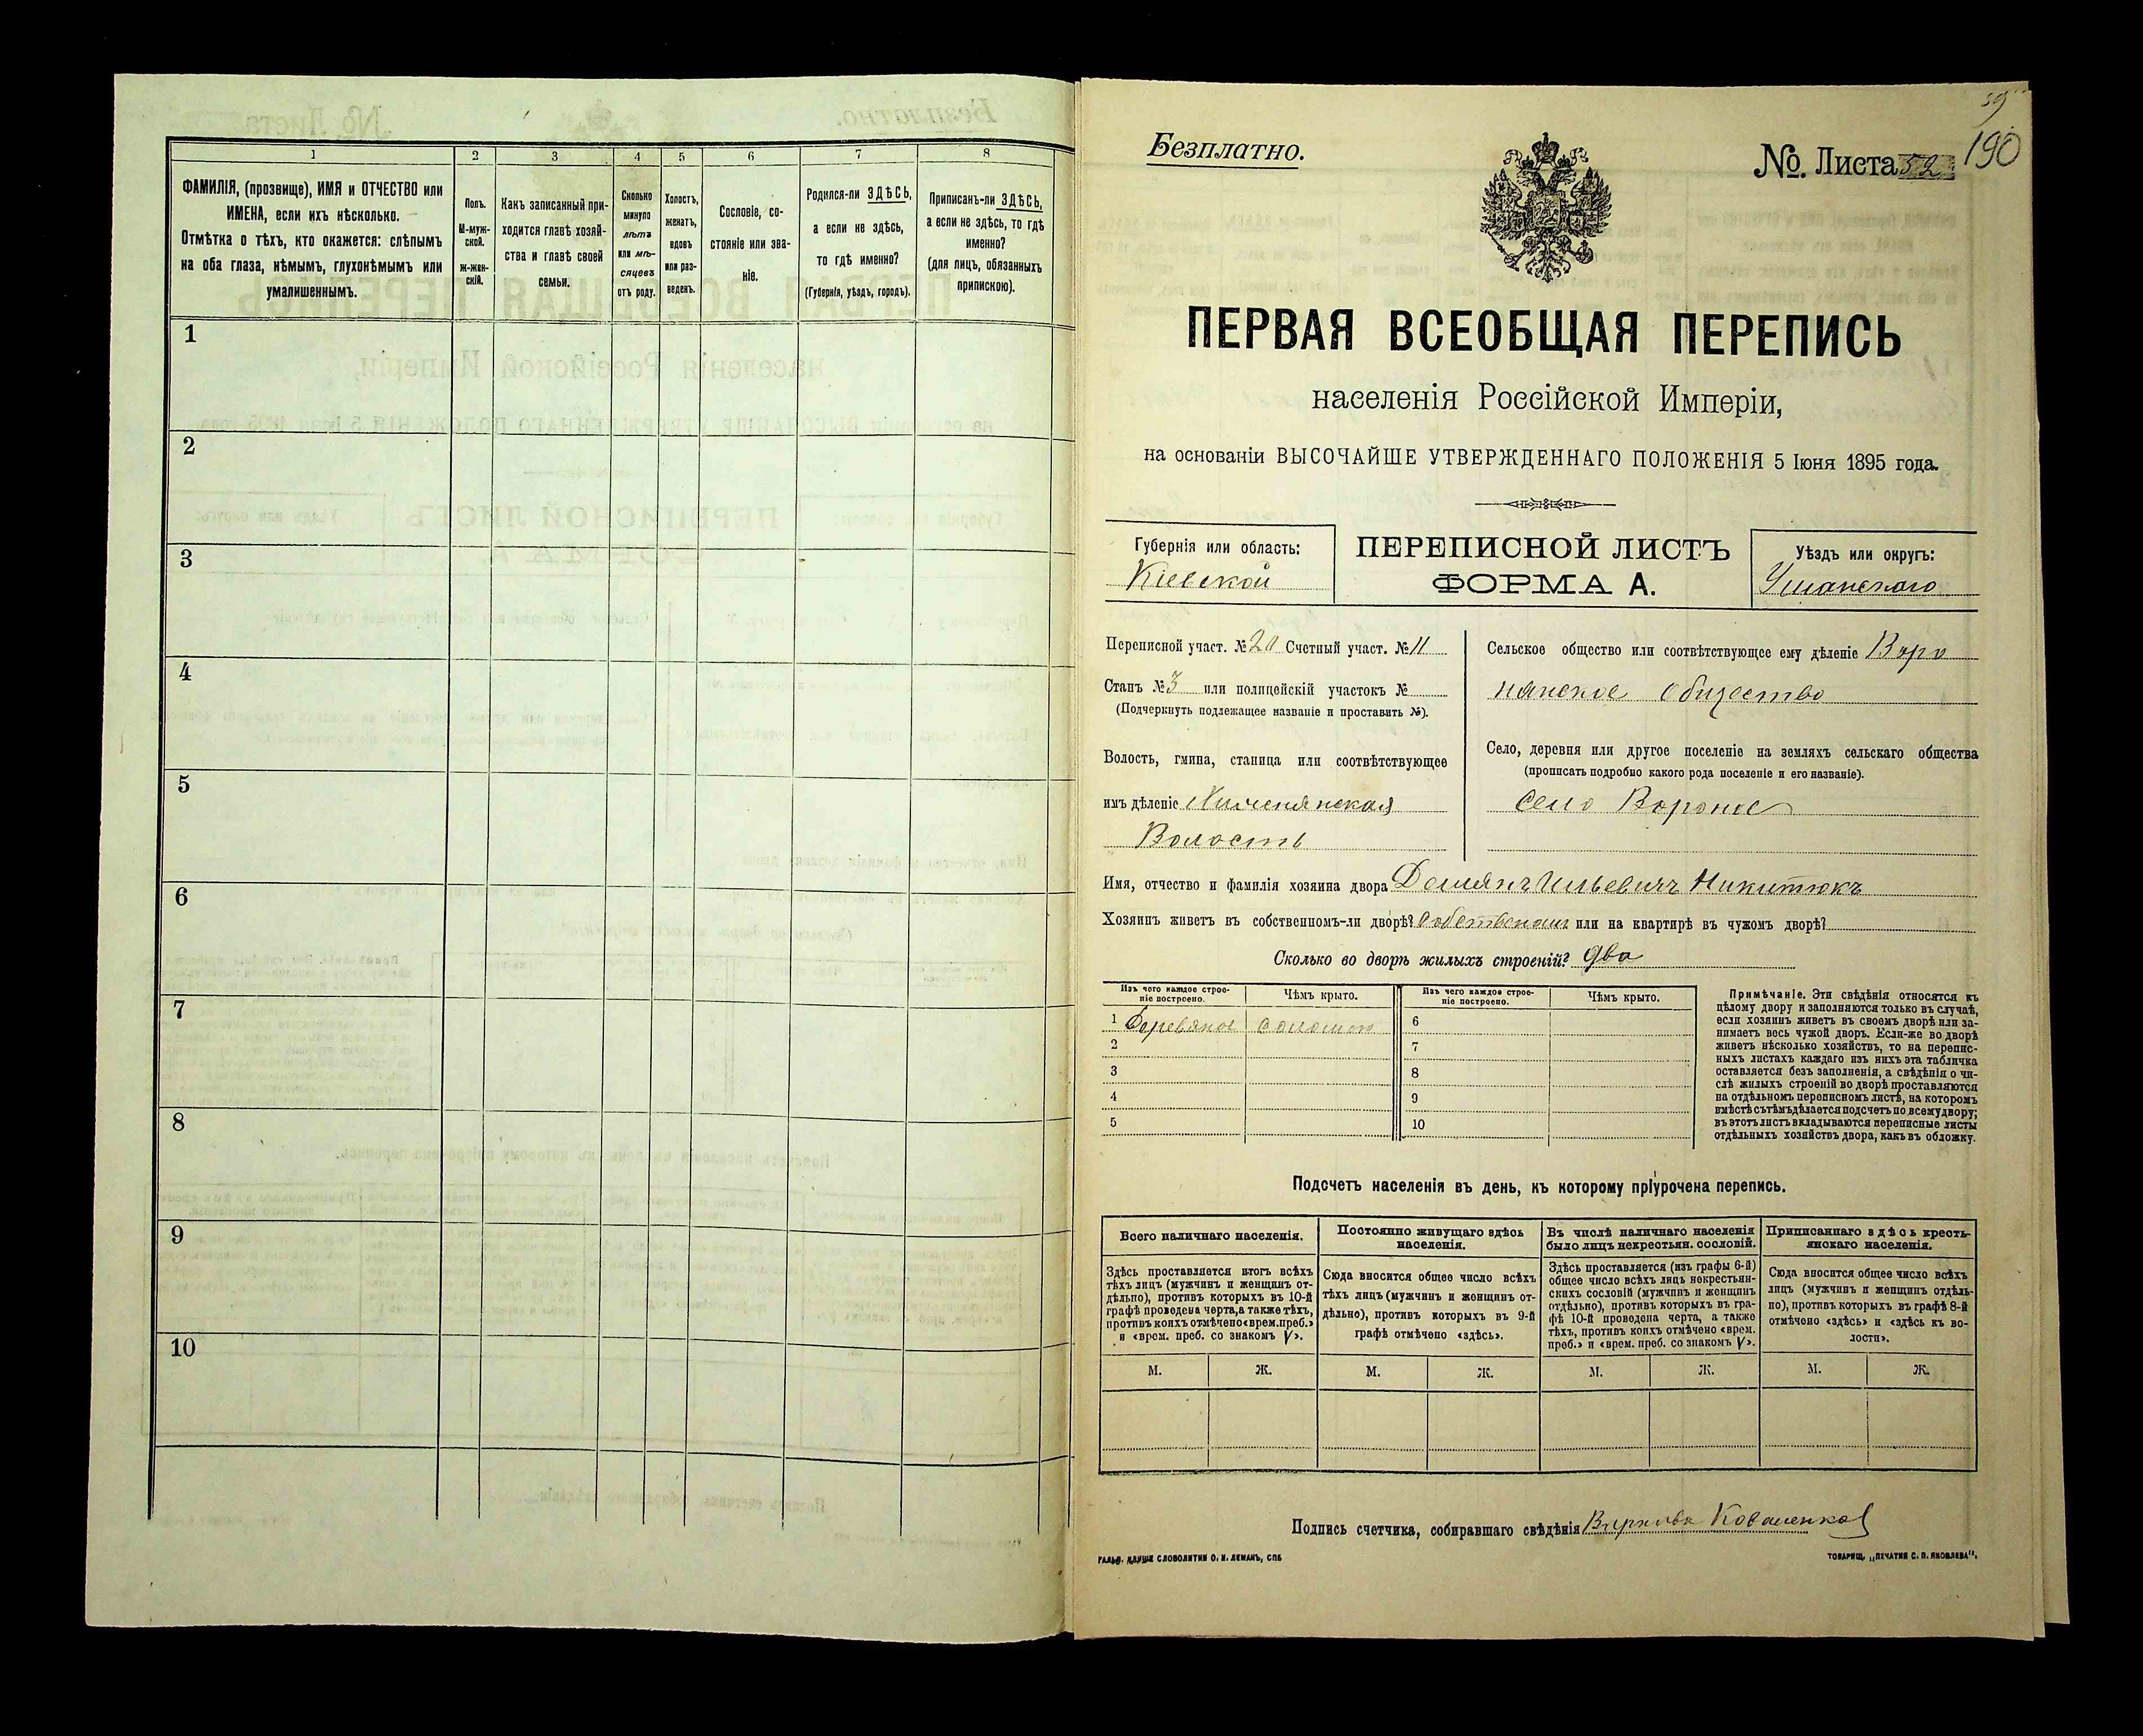 1 2 3 4 5 6 7 8
ФАМИЛІЯ, (прозвище), ИМЯ и ОТЧЕСТВО или
ИМЕНА, если ихъ нѣсколько.
Отмѣтка о тѣхъ, кто окажется: слѣпымъ
на оба глаза, нѣмымъ, глухонѣмымъ или
умалишеннымъ.
Полъ.
М-муж-
ской.
Ж-жен-
скій.
Какъ записанный при-
ходится главѣ хозяй-
ства и главѣ своей
семьи.
Сколько
минуло
лѣтъ
или мѣ-
сяцевъ
отъ роду.
Холостъ,
женатъ,
вдовъ
или раз-
веденъ.
Сословіе, со-
стояніе или зва-
ніе.
Родился-ли ЗДѢСЬ,
а если не здѣсь,
то гдѣ именно?
(Губернія, уѣздъ, городъ).
Приписанъ-ли ЗДѢСЬ,
а если не здѣсь, то гдѣ
именно?
(для лицъ, обязанныхъ
припискою).
1
2
3
4
5
6
7
8
9
10
59
190
Безплатно.
№. Листа 52
ПЕРВАЯ ВСЕОБЩАЯ ПЕРЕПИСЬ
населенія Россійской Имперіи,
на основаніи ВЫСОЧАЙШЕ УТВЕРЖДЕННАГО ПОЛОЖЕНІЯ 5 Іюня 1895 года.
Губернія или область:
Кіевской
ПЕРЕПИСНОЙ ЛИСТЪ
ФОРМА А.
Уѣздъ или округъ:
Уманскаго
Переписной участ. №20 Счетный участ. №11
Станъ №3 или полицейскій участокъ №
(Подчеркнуть подлежащее названіе и проставить №).
Волость, гмина, станица или соотвѣтствующее
имъ дѣленіе
Волость
Сельское общество или соотвѣтствующее ему дѣленіе Воро
нянское общество
Село, деревня или другое поселеніе на земляхъ сельскаго общества
(прописать подробно какого рода поселеніе и его названіе).
село Вороное
Имя, отчество и фамилія хозяина двора Демянъ Ильевичъ Никитюкъ
Хозяинъ живетъ въ собственномъ-ли дворѣ? собственом или на квартирѣ въ чужомъ дворѣ?
Сколько во дворѣ жилыхъ строеній? два
Изъ чего каждое строе-
ніе построено.
Чѣмъ крыто.
Изъ чего каждое строе-
ніе построено.
Чѣмъ крыто.
1 Деревяное соломою 6
2 7
3 8
4 9
5 10
Примѣчаніе. Эти свѣдѣнія относятся къ
цѣлому двору и заполняются только въ случаѣ,
если хозяинъ живетъ въ своемъ дворѣ или за-
нимаетъ весь чужой дворъ. Если-же во дворѣ
живетъ нѣсколько хозяйствъ, то на перепис-
ныхъ листахъ каждаго изъ нихъ эта табличка
оставляется безъ заполненія, а свѣдѣнія о чи-
слѣ жилыхъ строеній во дворѣ проставляются
на отдѣльномъ переписномъ листѣ, на которомъ
вмѣстѣ съ тѣмъ дѣлается подсчетъ по всему двору;
въ этотъ листъ вкладываются переписные листы
отдѣльныхъ хозяйствъ двора, какъ въ обложку.
Подсчетъ населенія въ день, къ которому пріурочена перепись.
Всего наличнаго населенія.
Здѣсь проставляется итогъ всѣхъ
тѣхъ лицъ (мужчинъ и женщинъ от-
дѣльно), противъ которыхъ въ 10-й
графѣ проведена черта, а также тѣхъ,
противъ коихъ отмѣчено «врем. преб.»
и «врем. преб. со знакомъ V».
Постоянно живущаго здѣсь
населенія.
Сюда вносится общее число всѣхъ
тѣхъ лицъ (мужчинъ и женщинъ от-
дѣльно), противъ которыхъ въ 9-й
графѣ отмѣчено «здѣсь».
Въ числѣ наличнаго населенія
было лицъ некрестьян. сословій.
Здѣсь проставляется (изъ графы 6-й)
общее число всѣхъ лицъ некрестьян-
скихъ сословій (мужчинъ и женщинъ
отдѣльно), противъ которыхъ въ гра-
фѣ 10-й проведена черта, а также
тѣхъ, противъ коихъ отмѣчено «врем.
преб.» и «врем. преб. со знакомъ V».
Приписаннаго здѣсь кресть-
янскаго населенія.
Сюда вносится общее число всѣхъ
лицъ (мужчинъ и женщинъ отдѣль-
но), противъ которыхъ въ графѣ 8-й
отмѣчено «здѣсь» и «здѣсь къ во-
лости».
М. Ж. М. Ж. М. Ж. М. Ж.
Подпись счетчика, собиравшаго свѣдѣнія Коваленко
ГАЛЬВ. КЛИШЕ СЛОВОЛИТНИ О. И. ЛЕМАНЪ, СПБ
ТОВАРИЩ. „ПЕЧАТНЯ С. П. ЯКОВЛЕВА".